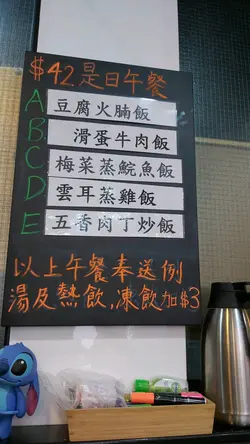 $42是日午餐
A 豆腐火腩飯
B 滑蛋牛肉飯
C 梅菜蒸鯇魚飯
D 雲耳蒸雞飯
E 五香肉丁炒飯
以上午餐奉送例
湯及熱飲,凍飲加$3